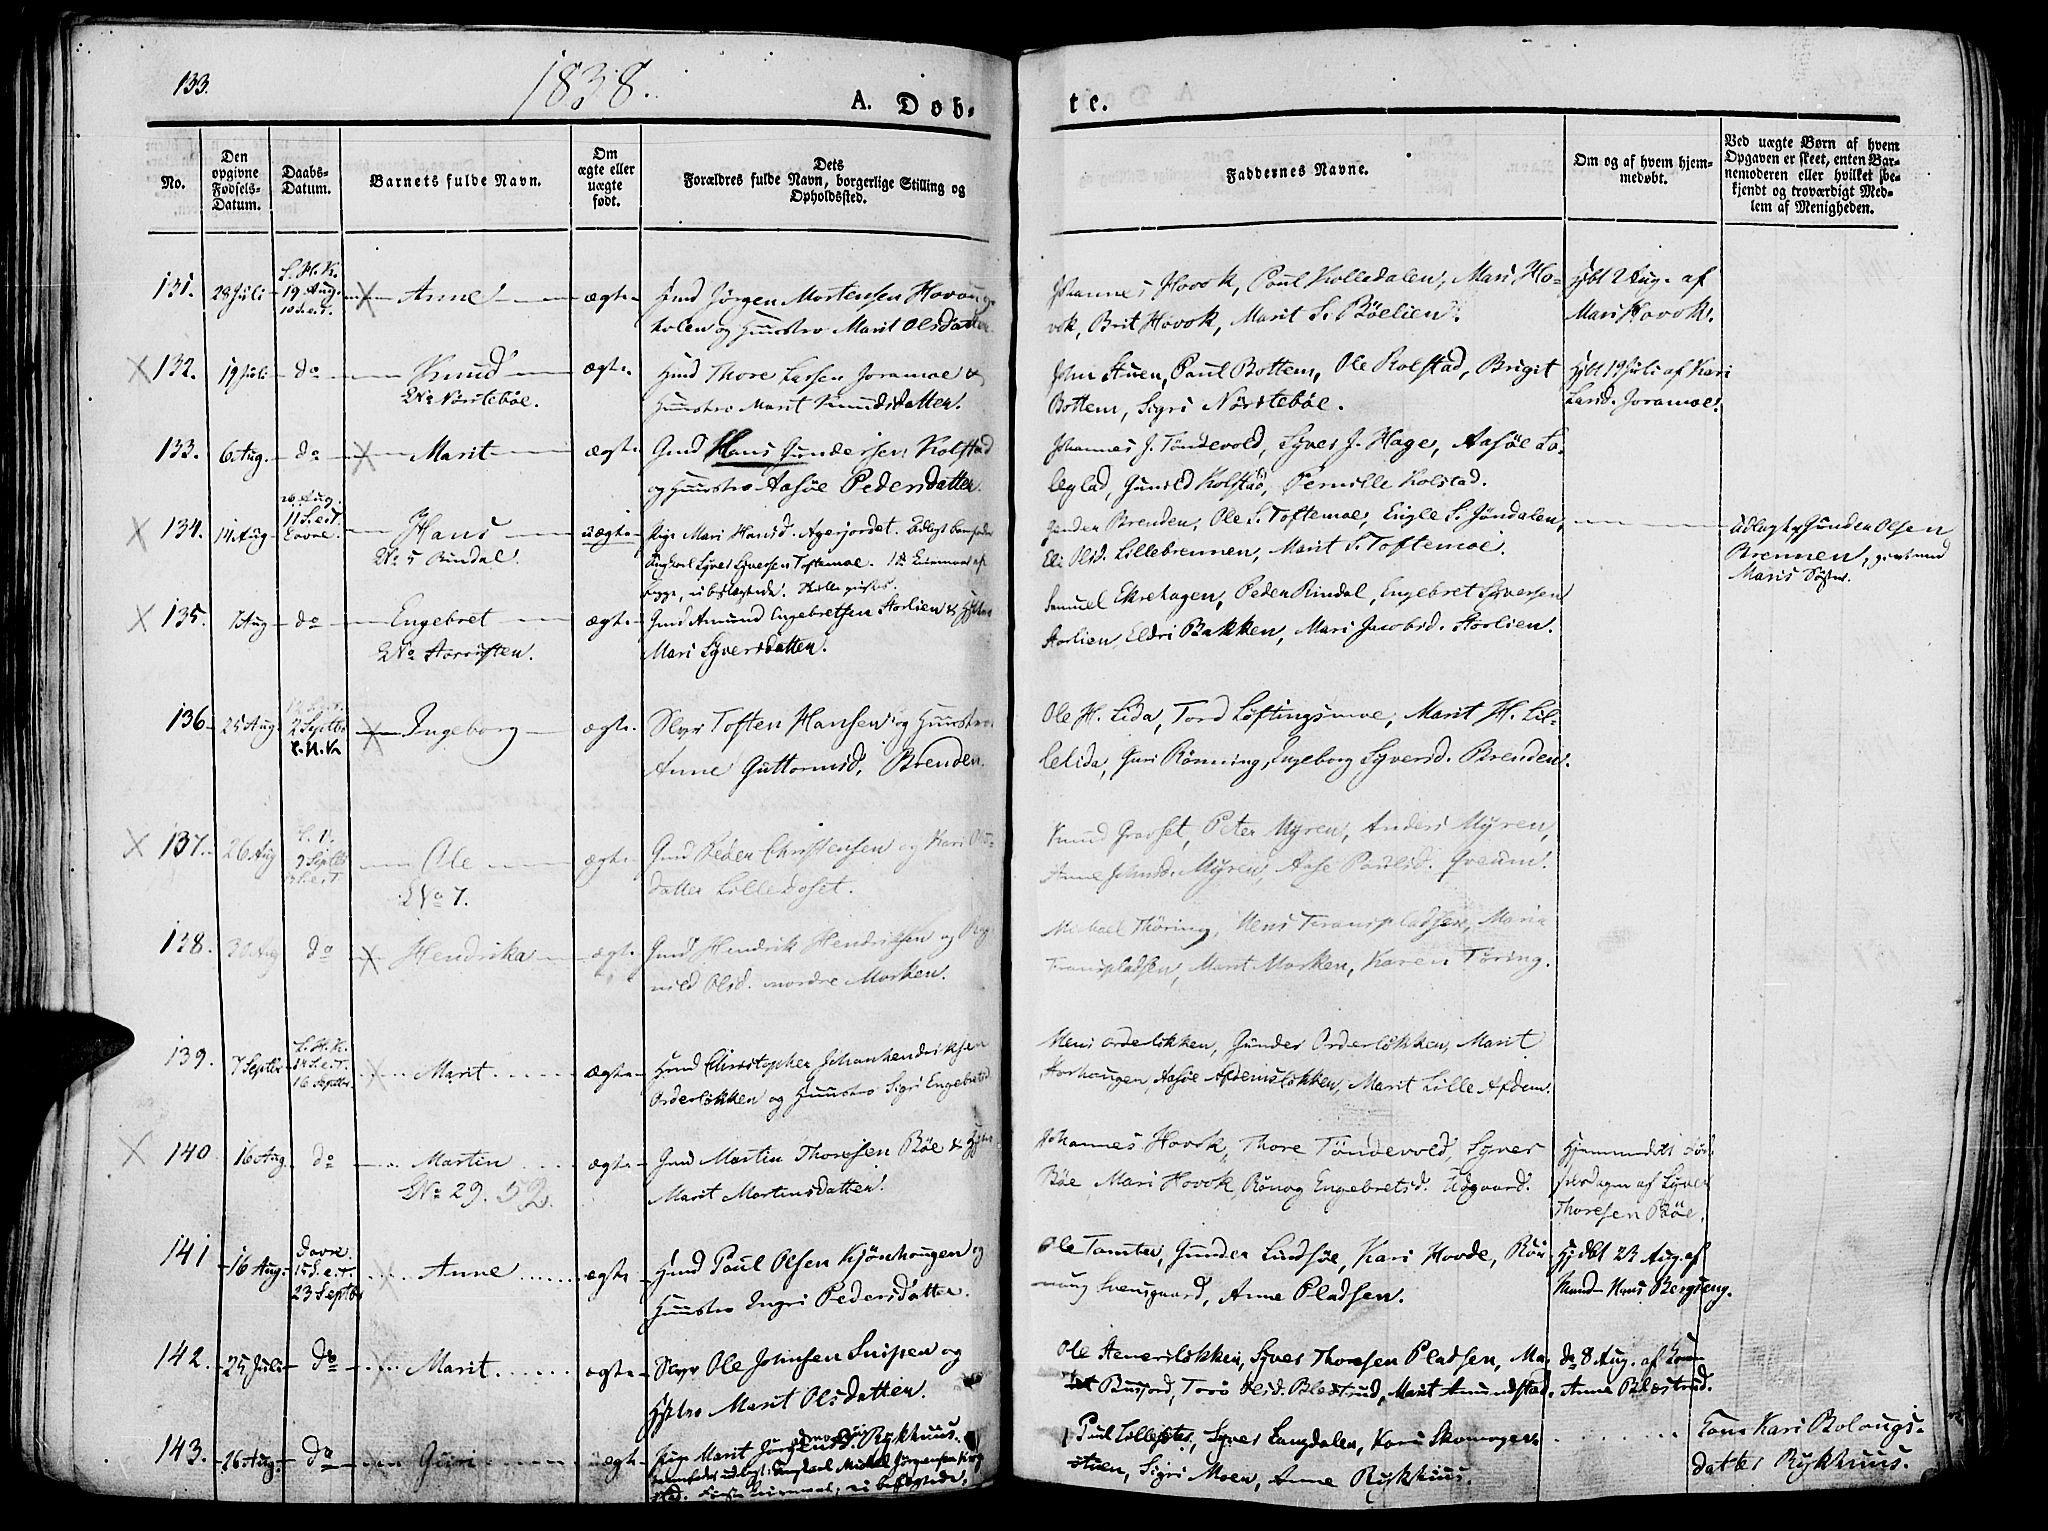 133.
1838.
A. Döb-
te.
No.
Den opgivne Fødsels-Datum.
Daabs-Datum.
Barnets fulde Navn.
Om ægte eller uægte født.
Dets Forældres fulde Navn, borgerlige Stilling og Opholdssted.
Faddernes Navne.
Om og af hvem hjemmedøbt.
Ved uægte Børn af hvem Opgaven er skeet, enten Barnemoderen eller hvilket bekjendt og troværdigt Medlem af Menigheden.
131. 28 Juli L. H. K. 19 Aug. 10 S.e.T. Anne ægte Jørgen Mortensen
og Huustro Marit Olsdatter
Johannes Hovok, Paul Kolledalen, Mari Ho-
vok, Brit Hovok, Marit S. Böelien.
Hjdt 2 Aug. af
Mari Hovok.
132. 19 Juli do Knud ægte Hmd Thore Larsen Joramoe &
No Nörstebøe. Huustro Marit Knudsdatter.
John Stuen, Paul Bottem, Ole Kolstad, Brigit
Bottem, Sigri Nörstebøe.
Hjdt 19 Juli af Kari
Larsd. Joramoe.
133. 6 Aug. do Marit ægte Gmd Hans Gundersen Kolstad
og Huustro Aasøe Pedersdatter.
Johannes J. Töndevold, Syver J. Hage, Aasøe
Gunild Kolstad, Pernille Kolstad.
134. 14 Aug 26 Aug. 11 S.e.T. Dovre. Hans uægte Pige Mari Hansd. Agerjordet. Udlagt barnefader
No 5 Rindal. Ungkarl Syver Syversen Toftemoe. 1ste Leiermaal af
begge, ei beslægtede.
Gunder Brenden, Ole S. Toftemoe, Engle S. Jöndalen,
Eli Olsd. Lillebrennen, Marit S. Toftemoe.
Udlagt af Gunder Olsen
Brennen, givt med
Maris Søster.
135. 7 Aug do Engebret ægte Gmd Amund Engebretsen Storlien & Hustro
No Mari Syversdatter.
Samuel Ekrehagen, Peder Rindal, Engebret Syversen
Storlien, Eldri Bakken, Mari Jacobsd. Storlien.
136. 25 Aug. 2 Septbr L. H. K Ingeborg ægte Slyr Toften Hansen og Huustro
Anne Guttormsd. Brenden.
Ole H. Lida, Tord Løftingsmoe, Marit H. Lil-
lelida, Guri Rönning, Ingeborg Syversd. Brenden.
137. 26 Aug 9 Septbr Ole ægte Gmd Peder Christensen og Kari Ols-
No 7. datter Lilledoset.
Knud Gravset, Peter Myren, Anders Myren,
Anne Johnsd. Myren, Aase Paulsd. Qveum.
138. 30 Aug do Hendrika ægte Gmd Hendrik Hendriksen og Rag-
nild Olsd. nordre Morken.
Michael Thöring, Hans Transpladsen, Maria
Transpladsen, Marit Morken, Karen Töring.
139. 7 Septbr L. H. K. 14 S.e.T. 16 Septbr Marit ægte Hmd Christopher Johanhendriksen
Orderløkken og Huustro Sigri Engebretsd.
Hans Orderløkken, Gunder Orderløkken, Marit
Horhaugen, Aasøe Afdemsløkken, Marit Lille Afdem.
140 16 Aug. do Martin ægte Gmd Martin Thoresen Bøe & Hstro
No 29. 52. Marit Mortensdatter.
Johannes Hovok, Thore Töndevold, Syver
Bøe, Mari Hovok, Rönog Engebretsd.
Hjemmedøbt Föd-
selsdagen af Syver
Thoresen Bøe.
141 16 Aug. Dovre. 15 S.e.T. 23 Septbr Anne ægte Hmd Paul Olsen Kjønhougen og
Huustro Ingri Pedersdatter.
Ole Tamten, Gunder Lindsøe, Kari Hovde, Rön-
naug Svensgaard, Anne Pladsen.
Hjdbt 23 Aug. af
Hans Bergseng.
142. 25 Juli do Marit ægte Slyr Ole Johnsen Snipen og
Hstro Marit Olsdatter.
Ole Steneriløkken, Syver Thoresen Pladsen, Ma-
Busjord, Toro Olsd. Blæstrud, Marit Amundstad.
do 8 Aug. af
Anne Blæstrud.
143. 26 Aug. do Guri uægte Pige Marit Jörgensd. Rykhuus.
barnefader udlagt: Ungkarl Mikkel Jörgensen
Første Leiermaal, ei beslægtede.
Paul Syver Langdalen, Kari
Stuen, Sigri Moen, Anne Rykhuus.
Kari Bolaugs-
datter Rykhuus.